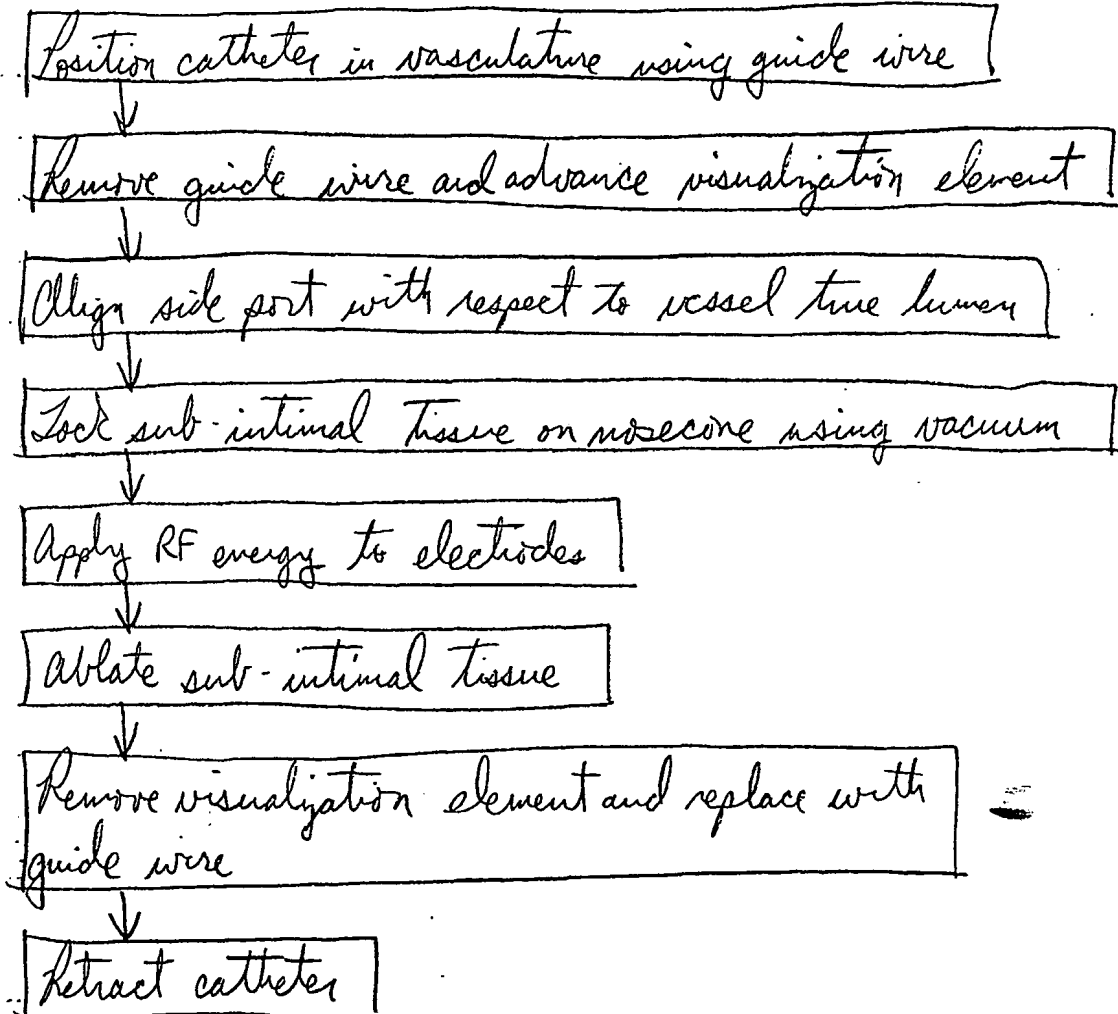 Position catheter in vasculature using guide wire
Remove guide wire and advance visualization element
Align side port with respect to vessel true lumen
Lock sub-intimal tissue on nosecone using vacuum
Apply RF energy to electrodes
Ablate sub-intimal tissue
Remove visualization element and replace with
guide wire
Retract catheter